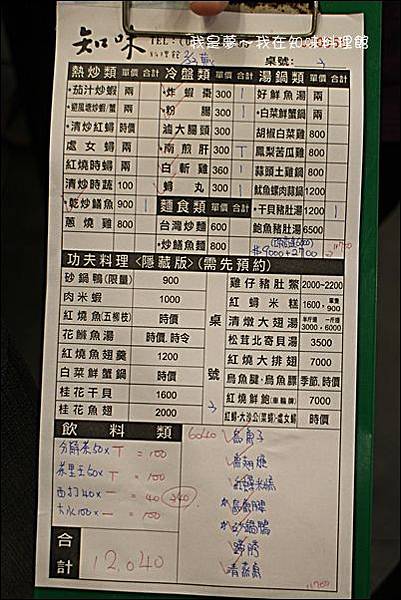 我是夢 我在知味料理館
知味 TEL:
桌號:
熱炒類 單價 合計 冷盤類 單價 合計 湯鍋類 單價 合計
茄汁炒蝦 兩 炸蝦棗 300 好鮮魚湯 兩
避風塘炒蝦/蟹 兩 粉腸 300 白菜鮮蟹鍋 兩
清炒紅蟳 時價 滷大腸頭 300 胡椒白菜雞 800
處女蟳 兩 南煎肝 300 T 鳳梨苦瓜雞 800
紅燒時蟳 兩 白斬雞 360 蒜頭土雞鍋 800
清炒時蔬 100 蟳丸 300 魷魚螺肉蒜鍋 1200
乾炒鱔魚 900 麵食類 單價 合計 干貝豬肚湯 1200
蔥燒雞 800 台灣炒麵 600 鮑魚豬肚湯 6500
炒鱔魚麵 800
9000+2700
功夫料理<隱藏版>(需先預約)
砂鍋鴨(限量) 900 雞仔豬肚鱉 2000~2200
肉米蝦 1000 紅蟳米糕 1600,
紅燒魚(五柳枝) 時價 清燉大翅湯 半斤一斤 3000/6000
花鰡魚湯 時價,時令 松茸北寄貝湯 3500
紅燒魚翅羹 1200 紅燒大排翅 7000
白菜鮮蟹鍋 時價 烏魚腱.烏魚膘 季節.時價
桂花干貝 1600 紅燒鮮鮑(車輪牌) 7000
桂花魚翅 2000 時價
桌號
飲料類
分解茶50x T = 100
茶里王50x T = 100
西打40x 一 = 40
大水100x 一 = 100
340
6040
烏魚子
紅蟳米糕
砂鍋鴨
合計 12,040